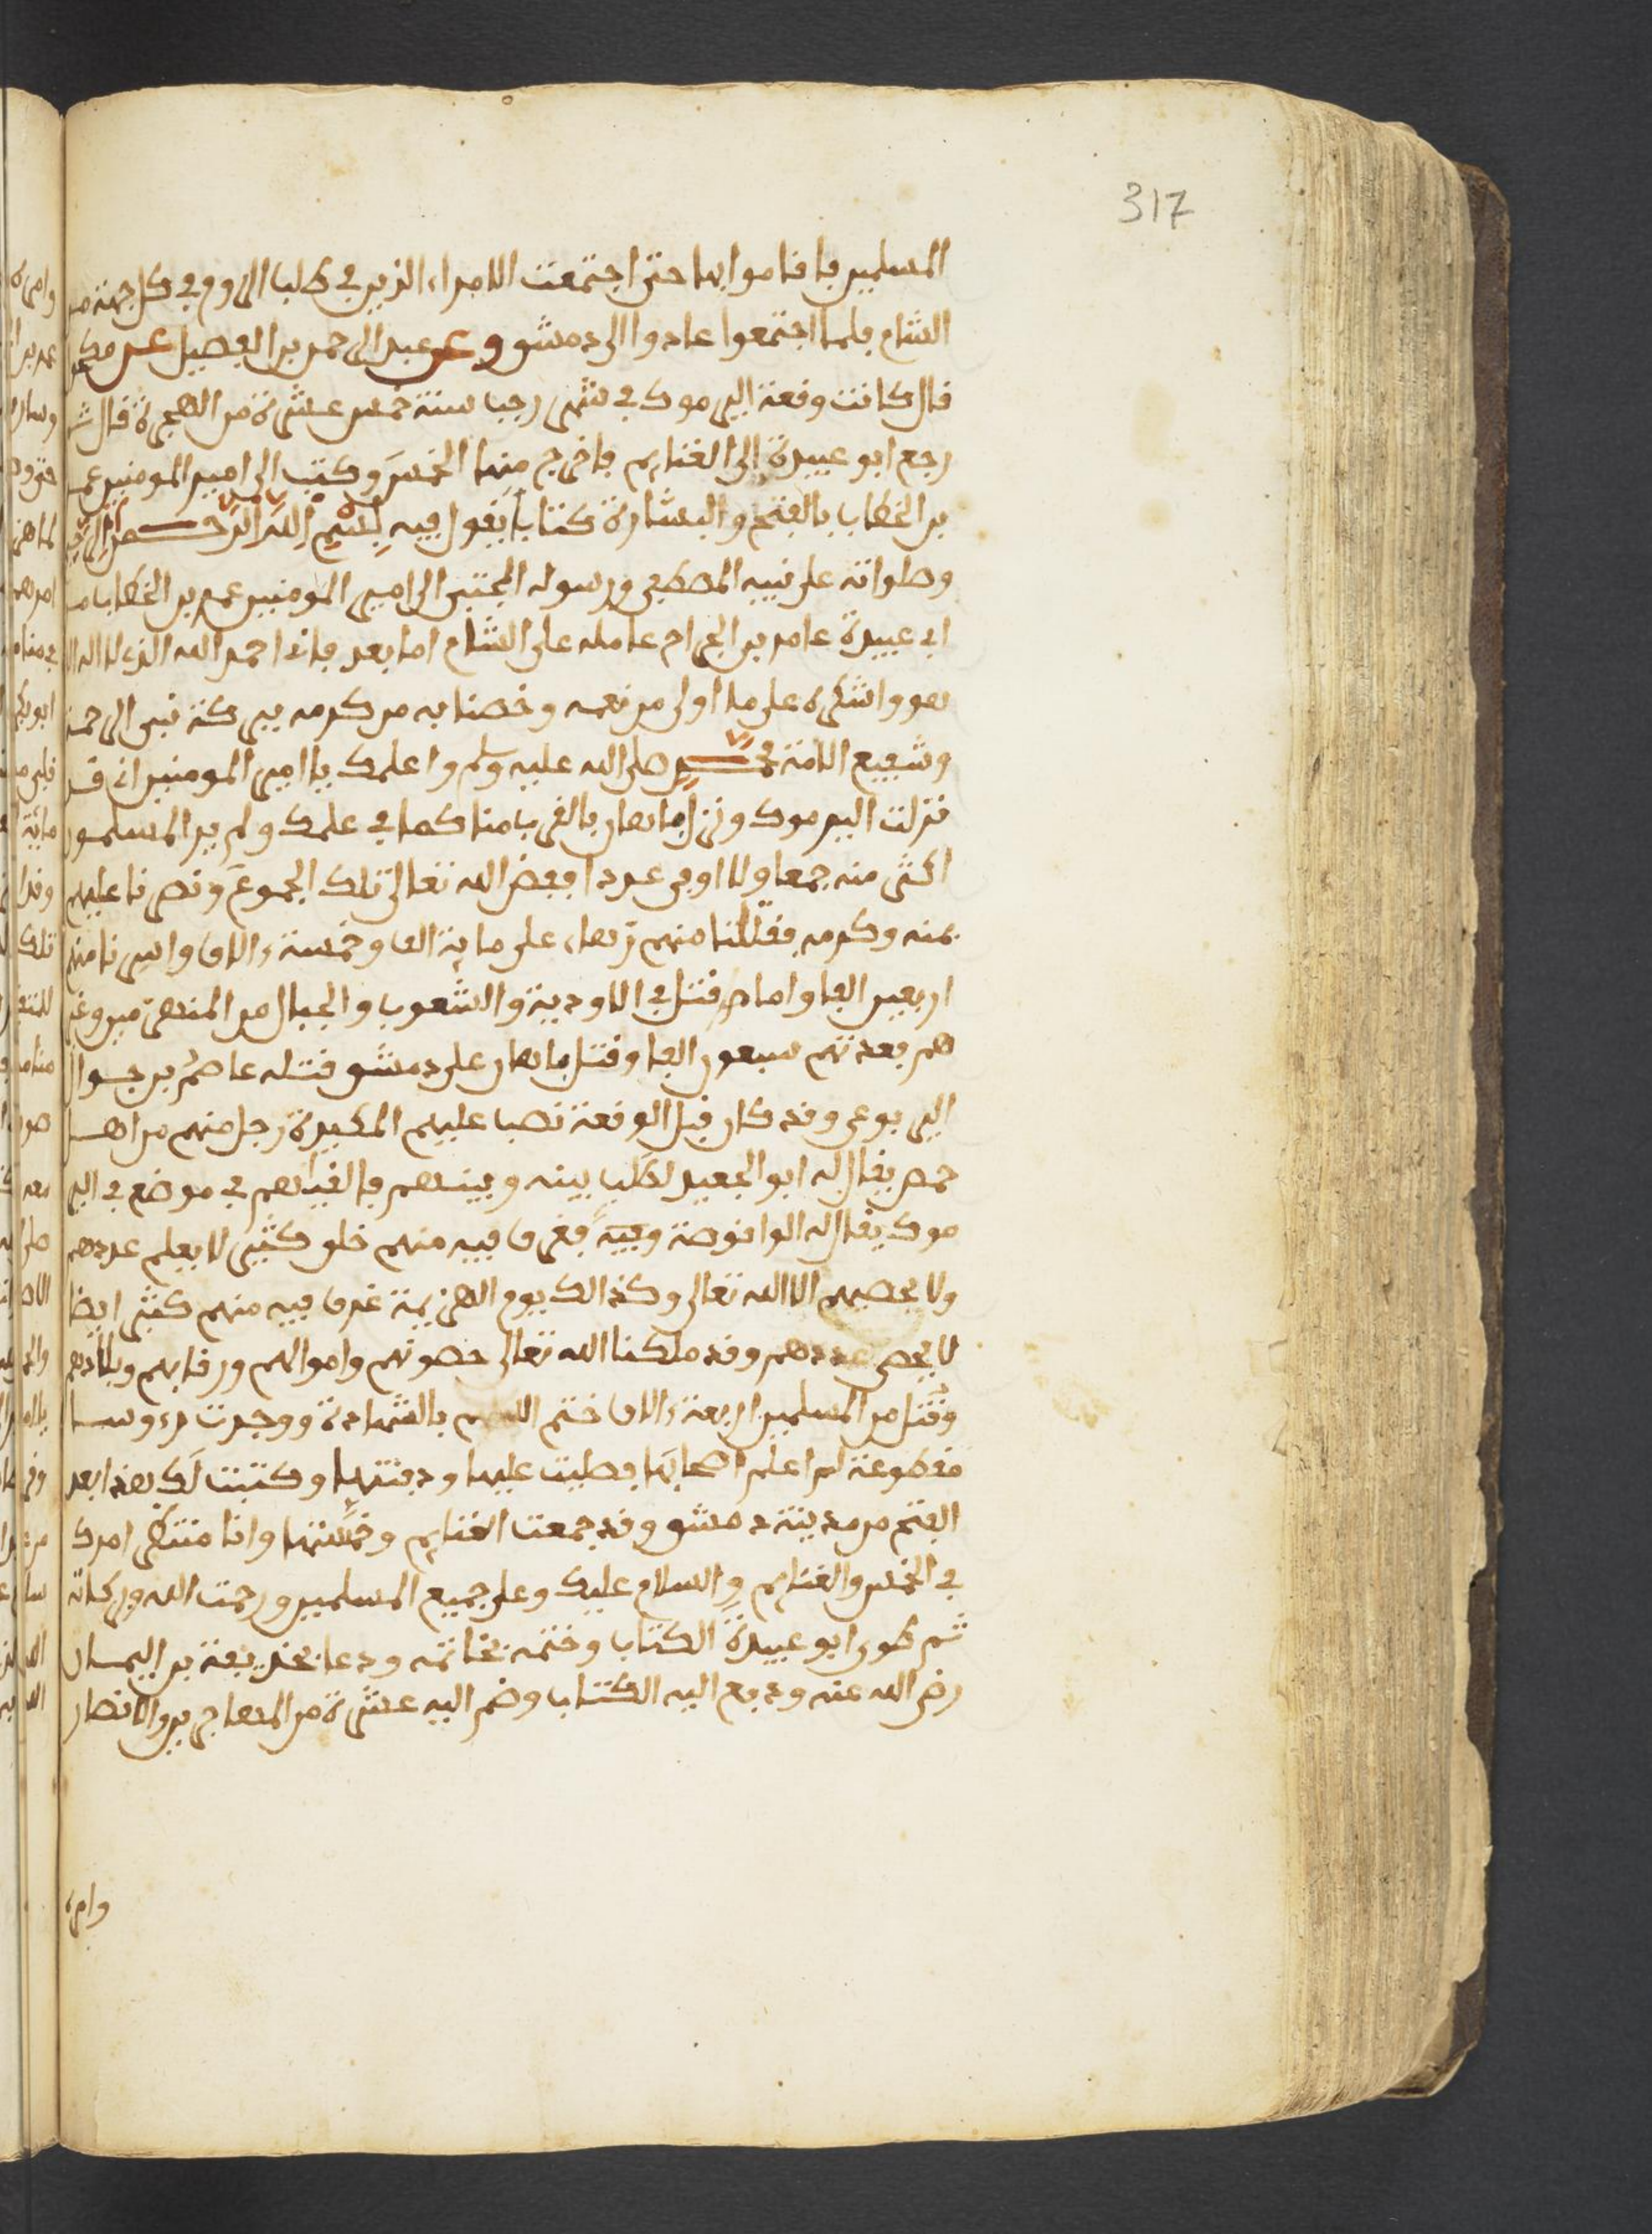 317
المسلمين فاقاموا بها حتى اجتمعت الامراء الذين في طلب الروم في كل جهة من
الشام فلما اجتمعوا عادوا الى دمشق وعن عبد الرحمن بن الفضيل عن مكحول
قال كانت وقعة اليرموك في شهر رجب سنة خمس عشرة من الهجرة قال ثم
رجع ابو عبيدة الى الغنايم فاخرج منها الخمس وكتب الى امير المومنين عمر
بن الخطاب بالفتح والبشارة كتابا يقول فيه بسم الله الرحمن الرحيم
وصلواته على نبيه المصطفى ورسوله المجتبى الى امير المومنين عمر بن الخطاب من
ابي عبيدة عامر بن الجراح عامله على الشام اما بعد فاني احمد الله الذي لا اله الا
هو واشكره على ما اولى من نعمه وخصنا به من كرمه ببركة نبي الرحمة
وشفيع الامة محمد صلى الله عليه وسلم واعلمك يا امير المومنين اني قد
نزلت اليرموك ونزل باهان بالقرب منا كما في علمك ولم ير المسلمون
اكثر منه جمعا ولا اوفر عددا ففض الله تعالى تلك الجموع ونصرنا عليهم
بمنه وكرمه فقتلنا منهم زهاء على ماية الف وخمسة ءالاف واسرنا منهم
اربعين الفا واما من قتل في الاودية والشعوب والجبال من المنهزمين وغير
هم فعدتهم سبعون الفا وقتل باهان على دمشق قتله عاصم بن جوال
اليربوعي وقد كان قبل الوقعة نصب عليهم المكيدة رجل منهم من اهل
حمص يقال له ابو الجعيد لطلب بينه وبينهم فالقياهم في موضع في الير
موك يقال له الواقوصة فغرق فيه منهم خلق كثير لا يعلم عددهم
ولا يحصيهم الا الله تعالى وكذالك يوم الهزيمة غرق فيه منهم كثير ايضا
لا يحصى عددهم وقد ملكنا الله تعالى حصونهم واموالهم ورقابهم وبلادهم
وقتل من المسلمين اربعة ءالاف ختم الله لهم بالشهادة ووجدت رءوسا
مقطوعة لم اعلم اصحابها فصليت عليها ودفنتها وكتبت لك هذا بعد
الفتح من مدينة دمشق وقد جمعت الغنايم وخمستها وانا منتظر امرك
في الخمس والغنايم والسلام عليك وعلى جميع المسلمين ورحمت الله وبركاته
ثم طوى ابو عبيدة الكتاب وختمه بخاتمه ودعا بحذيفة بن اليمان
رضي الله عنه ودفع اليه الكتاب وضم اليه عشرة من المهاجرين والانصار